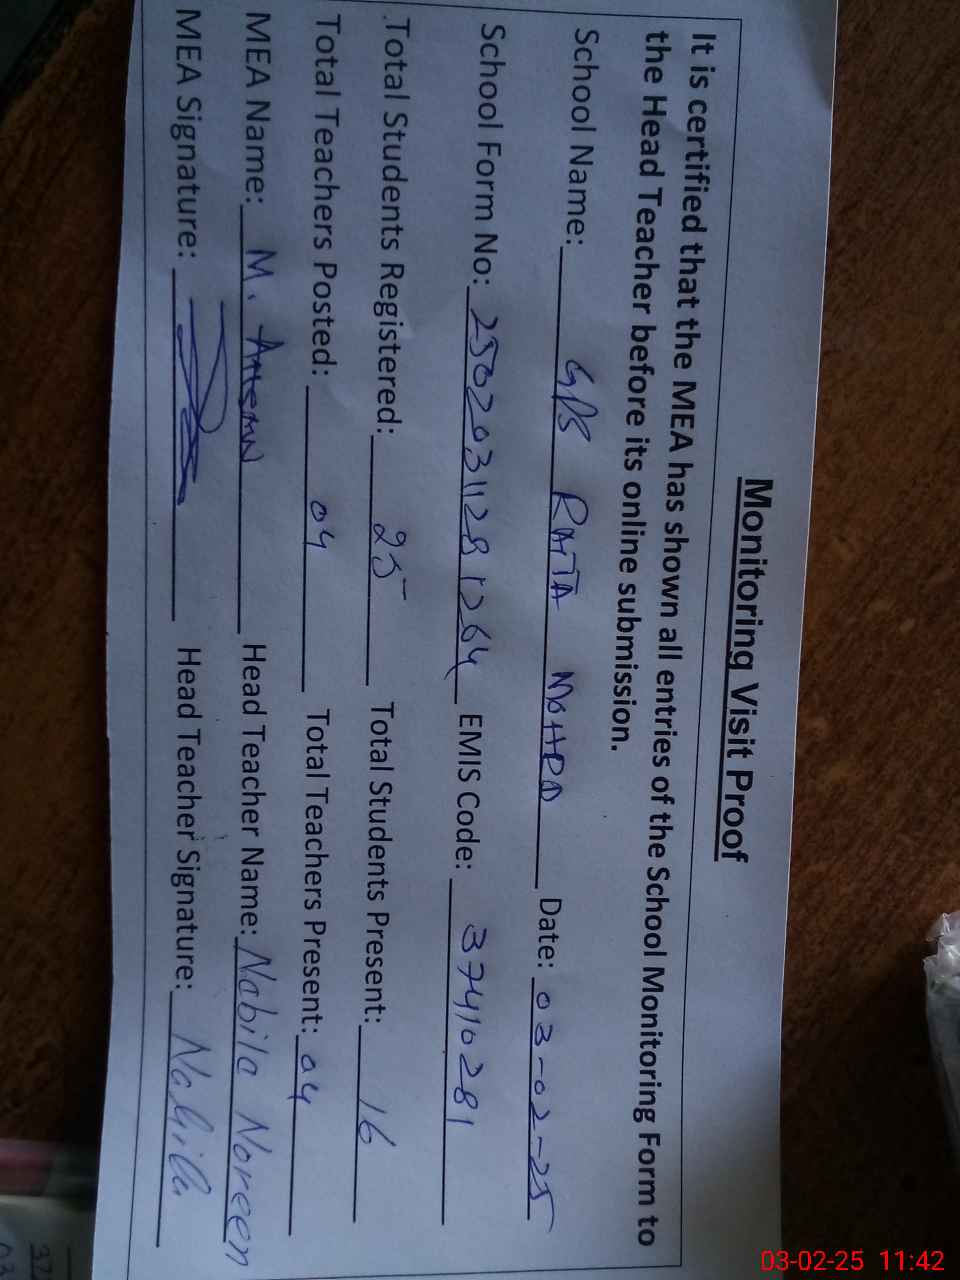 Monitoring Visit Proof
It is certified that the MEA has shown all entries of the School Monitoring Form to
the Head Teacher before its online submission.
School Name: GPS RATTA MOHRA Date: 03-02-25
School Form No: 25020311281264 EMIS Code: 37410281
.Total Students Registered: 25 Total Students Present: 16
Total Teachers Posted: 04 Total Teachers Present: 04
MEA Name: M. Head Teacher Name: Nabila Noreen
MEA Signature: Head Teacher Signature: Nabila
03-02-25 11:42